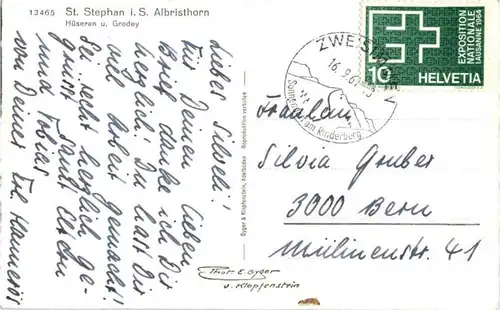 13465 St. Stephan i. S. Albristhorn
Hüseren u. Grodey
Liebes Silveli!
Für Deinen lieben
Brief danke ich Dir
herzlich. Du hast Dir
viel Arbeit gemacht!
Sei recht herzlich ge-
grüsst samt Eltern
und Tobias
von Deiner
Gyger & Klopfenstein, Adelboden Reproduktion verboten
Phot. E. Gyger
u. Klopfenstein
ZWEISIMMEN
16.9.
am Rinderberg
EXPOSITION
NATIONALE
LAUSANNE 1964
10 HELVETIA
Fräulein
Silvia Gruber
3000 Bern
Mülinenstr. 41